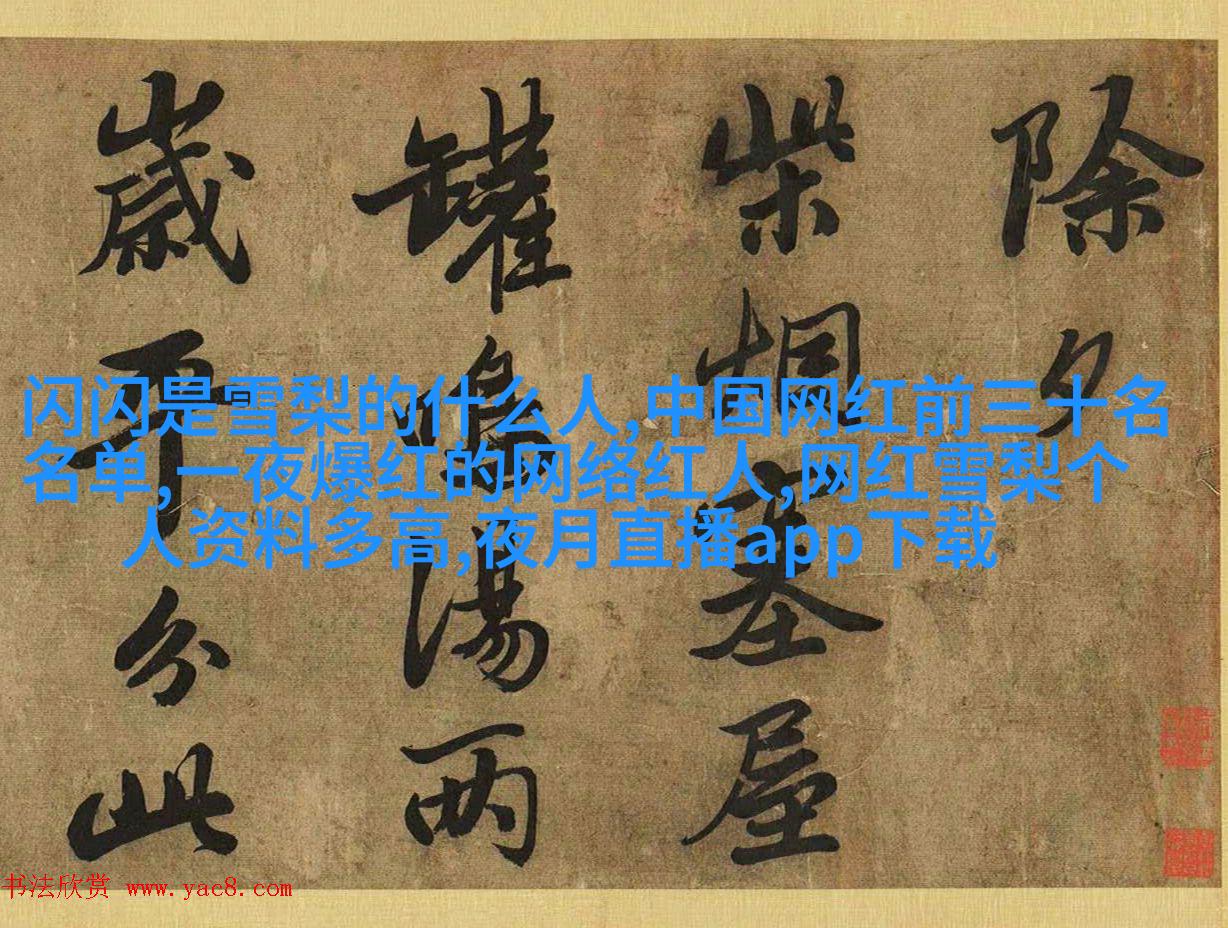 除夕
柴烟塞屋
罐鳴湯两
歲平分此
闪闪是雪梨的什么人,中国网红前三十名
名单,一夜爆红的网络红人,网红雪梨个
人资料多高,夜月直播app下载
书法欣赏 www.yac8.com